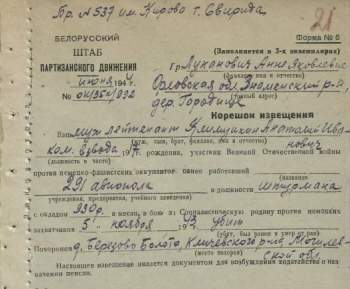 Пр. № 537 им. Кирова г. Свирида
21
БЕЛОРУССКИЙ
ШТАБ
ПАРТИЗАНСКОГО ДВИЖЕНИЯ
Форма № 6
(Заполняется в 3-х экземплярах)
Гр. Луканович Анне Яковлевне
(фамилия, имя и отчество)
июня 194
Орловская обл. Знаменский р-н,
адрес)
дер. Городище
Корешок извещения
Ваш муж лейтенант Анатолий Ива
(муж, сын, брат, фамилия, имя и отчество)
нович
ком. взвода
рождения, участник Великой Отечественной войны
(должность в части)
против немецко-фашистских оккупантов, ранее работавший
(название
291 авиаполк в должности штурмана
учреждения, предприятия, учебного заведения)
с окладом 930 р. в месяц, в бою за Социалистическую родину против немецких
захватчиков 5 ноября 1943 убит
(убит, был ранен и умер от ран)
Похоронен д. Березово Болото, Кличевского р-на Могилев-
(место похорон)
ской обл.
Настоящее извещение является документом для возбуждения ходатайства о наз-
начении пенсии.